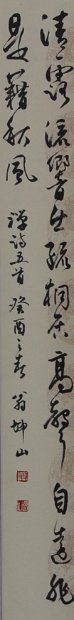 清露流響出疏桐居高聲自遠非
是藉秋風 禪詩五首 癸酉之春 翁坤山